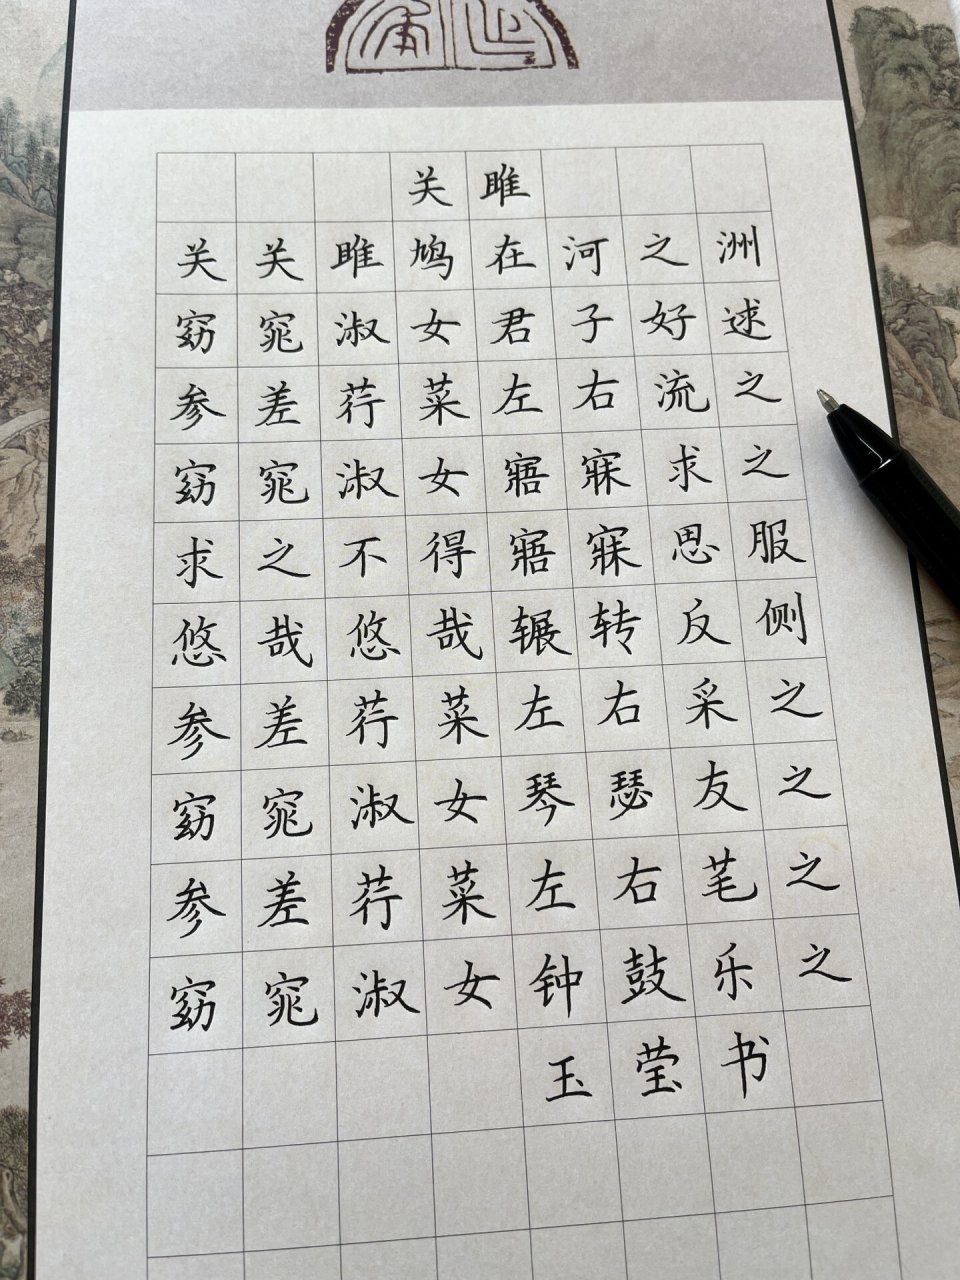 关雎
关关雎鸠在河之洲
窈窕淑女君子好逑
参差荇菜左右流之
窈窕淑女寤寐求之
求之不得寤寐思服
悠哉悠哉辗转反侧
参差荇菜左右采之
窈窕淑女琴瑟友之
参差荇菜左右芼之
窈窕淑女钟鼓乐之
玉莹书